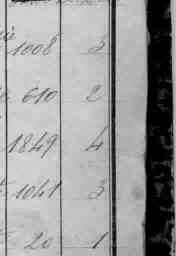 1008 3
610 2
1849 4
1041 3
20 1